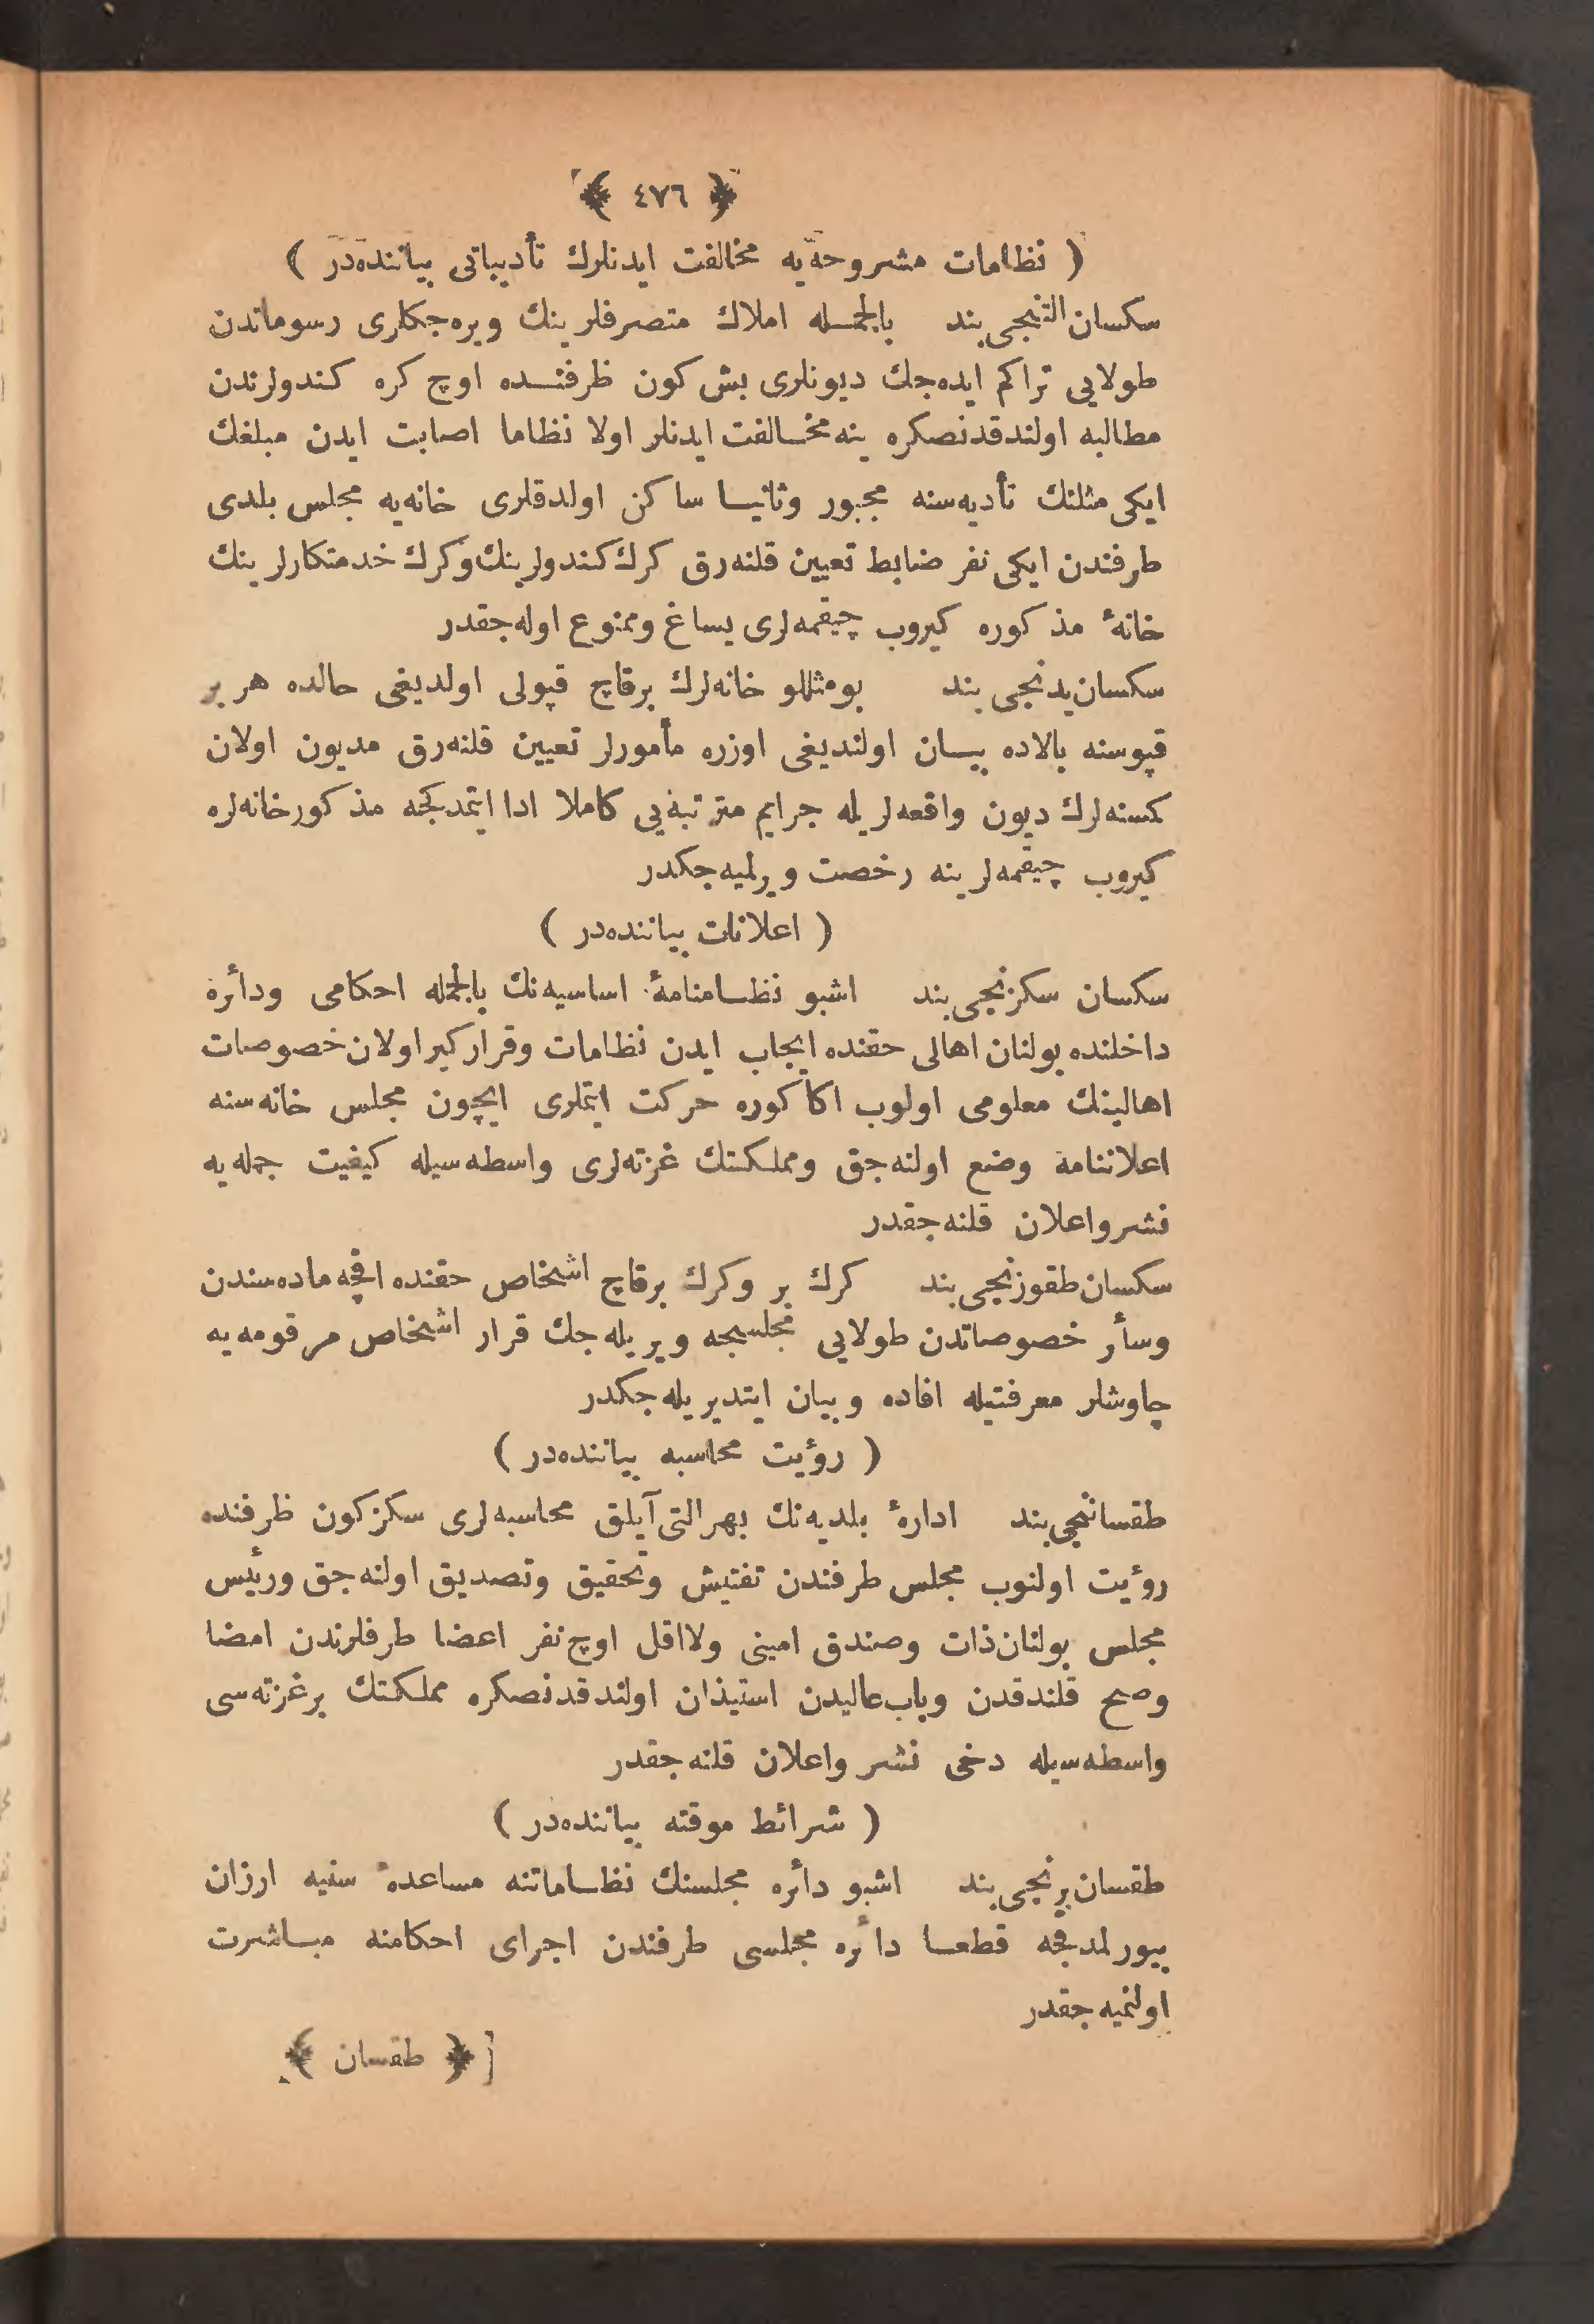 ٤٧٦
( نظامات مشروحه‌یه مخالفت ایدنلرك تأدیباتی بیاننده‌در )
سکسان التنجی بند بالجمله املاك متصرفلرینك ویره‌جکلری رسوماتدن
طولایی تراکم ایده‌جك دیونلری بش کون ظرفنده اوچ کره کندولرندن
مطالبه اولندقدنصکره ینه مخالفت ایدنلر اولا نظاما اصابت ایدن مبلغك
ایکی مثلنك تأدیه‌سنه مجبور وثانیا ساکن اولدقلری خانه‌یه مجلس بلدی
طرفندن ایکی نفر ضابط تعیین قلنه‌رق کرك کندولرینك وکرك خدمتکارلرینك
خانهٔ مذکوره کیروب چیقمه‌لری یساغ وممنوع اوله‌جقدر
سکسان یدنجی بند بومثللو خانه‌لرك برقاچ قپولی اولدیغی حالده هر بر
قپوسنه بالاده بیان اولندیغی اوزره مأمورلر تعیین قلنه‌رق مدیون اولان
کمسنه‌لرك دیون واقعه‌لریله جرایم مترتبه‌یی کاملا ادا ایتمدکجه مذکور خانه‌لره
کیروب چیقمه‌لرینه رخصت ویرلمیه‌جکدر
( اعلانات بیاننده‌در )
سکسان سکزنجی بند اشبو نظامنامهٔ اساسیه‌نك بالجمله احکامی ودائره
داخلنده بولنان اهالی حقنده ایجاب ایدن نظامات وقرارکیر اولان خصوصات
اهالینك معلومی اولوب اکا کوره حرکت ایتملری ایچون مجلس خانه‌سنه
اعلاننامه وضع اولنه‌جق ومملکتك غزته‌لری واسطه‌سیله کیفیت جمله‌یه
نشر واعلان قلنه‌جقدر
سکسان طقوزنجی بند کرك بر وکرك برقاچ اشخاص حقنده اقچه ماده‌سندن
وسائر خصوصاتدن طولایی مجلسجه ویریله‌جك قرار اشخاص مرقومه‌یه
چاوشلر معرفتیله افاده وبیان ایتدیریله‌جکدر
( رؤیت محاسبه بیاننده‌در )
طقسانجی بند ادارهٔ بلدیه‌نك بهر التی آیلق محاسبه‌لری سکز کون ظرفنده
رؤیت اولنوب مجلس طرفندن تفتیش وتحقیق وتصدیق اولنه‌جق ورئیس
مجلس بولنان ذات وصندق امینی ولااقل اوچ نفر اعضا طرفلرندن امضا
وصح قلندقدن وباب عالیدن استیذان اولندقدنصکره مملکتك برغزته‌سی
واسطه‌سیله دخی نشر واعلان قلنه‌جقدر
( شرائط موقته بیاننده‌در )
طقسان برنجی بند اشبو دائره مجلسنك نظاماتنه مساعدهٔ سنیه ارزان
بیورلمدقجه قطعا دائره مجلسی طرفندن اجرای احکامنه مباشرت
اولنمیه‌جقدر
طقسان